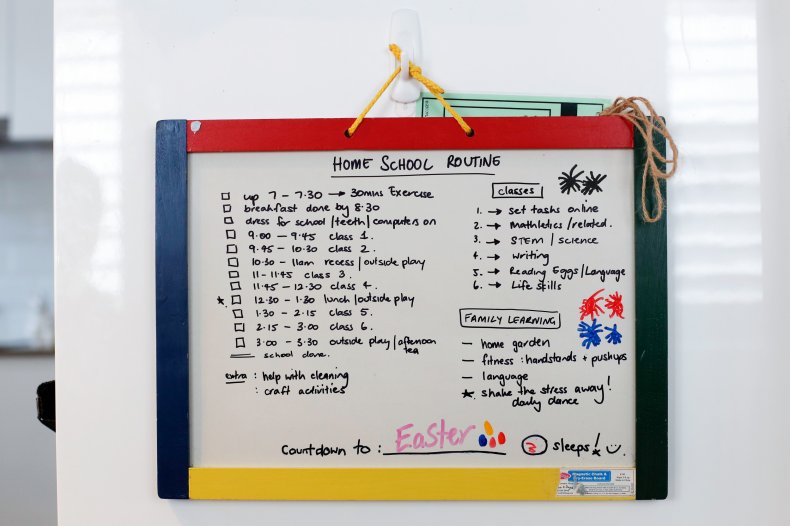 HOME SCHOOL ROUTINE
up 7 - 7.30 → 30mins Exercise
breakfast done by 8.30
dress for school / teeth / computers on
9.00 - 9.45 class 1.
9.45 - 10.30 class 2.
10.30 - 11am recess / outside play
11 - 11.45 class 3.
11.45 - 12.30 class 4.
* 12.30 - 1.30 lunch / outside play
1.30 - 2.15 class 5.
2.15 - 3.00 class 6.
3.00 - 3.30 outside play / afternoon
tea
school done.
extra : help with cleaning
: craft activities
classes
1. → set tasks online
2. → Mathletics / related.
3. → STEM / science
4. → writing
5. → Reading Eggs / Language
6. → Life skills
FAMILY LEARNING
- home garden
- fitness : handstands + pushups
- language
* shake the stress away!
daily dance
Countdown to : Easter sleeps!
Magnetic Chalk &
Dry-Erase Board